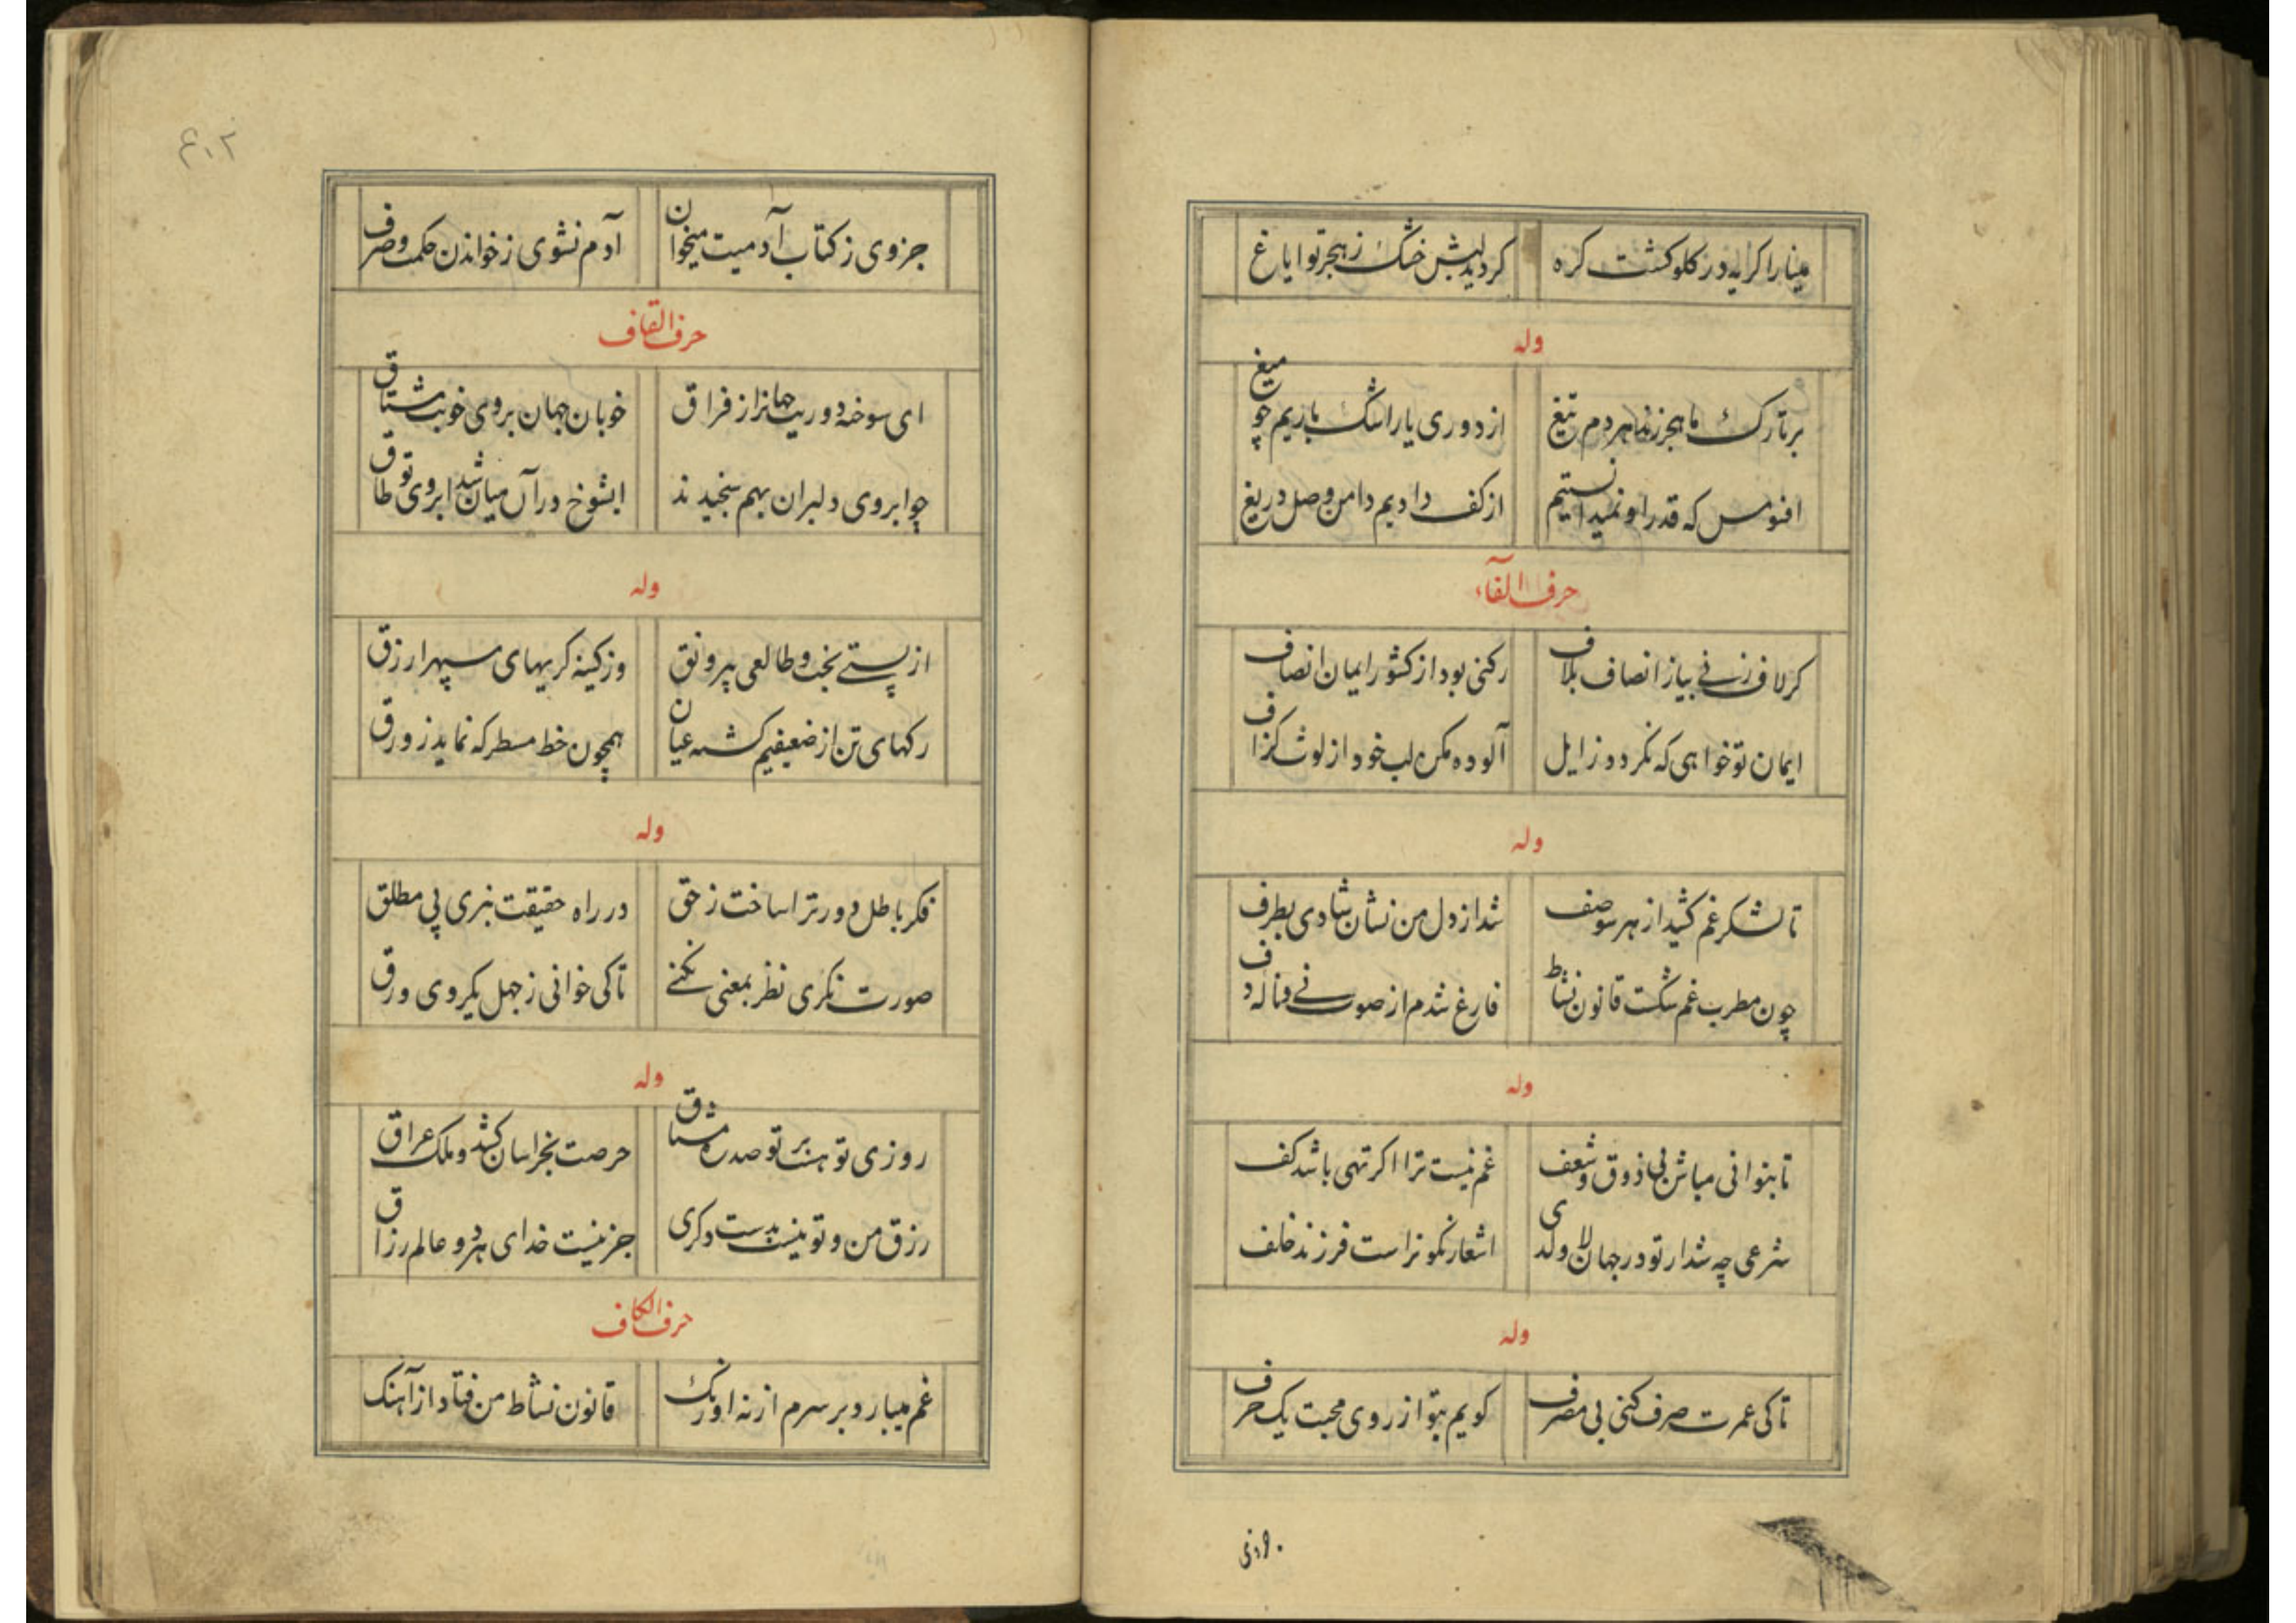 مینا را کریه در کلو کشت کره کردید لبش خشک ز هجر تو ایاغ
وله
بر تارک ما هجر زند هر دم تیغ از دوری یار اشک باریم چو میغ
افسوس که قدر او نمیدانستیم از کف دادیم دامن وصل دریغ
حرف الفآء
کر لاف زنی بیا ز انصاف بلاف رکنی بود از کشور ایمان انصاف
ایمان تو خواهی که نکردد زایل آلوده مکن لب خود از لوث کزاف
وله
تا لشکر غم کشید از هر سو صف شد از دل من نشان شادی بطرف
چون مطرب غم شکست قانون نشاط فارغ شدم از صوت نی و ناله دف
وله
تا بتوانی مباش بی ذوق و شعف غم نیست ترا اکر تهی باشد کف
شرعی چه شد ار تو در جهان لاولدی اشعار نکو تراست فرزند خلف
وله
تا کی عمرت صرف کنی بی مصرف کویم بتو از روی محبت یک حرف
جزوی ز کتاب آدمیت میخوان آدم نشوی ز خواندن حکمت و صرف
حرف القاف
ای سوخته دوریت جهانرا ز فراق خوبان جهان بروی خوبت مشتاق
چو ابروی دلبران بهم سنجیدند ایشوخ در آن میان شد ابروی تو طاق
وله
از پستی بخت و طالعی بی رونق وز کینه کریهای سپهر ازرق
رکهای تن از ضعیفیم کشته عیان همچون خط مسطر که نماید ز ورق
وله
فکر باطل دور ترا ساخت ز حق در راه حقیقت نبری پی مطلق
صورت نکری نظر بمعنی نکنی تا کی خوانی ز جهل یکروی ورق
وله
روزی تو هست بر تو صد ره مشتاق حرصت بخراسان کشد و ملک عراق
رزق من و تو نیست بدست دکری جز نیست خدای هر دو عالم رزاق
حرف الکاف
غم میبارد بر سرم از نه اورنک قانون نشاط من فتاد از آهنک